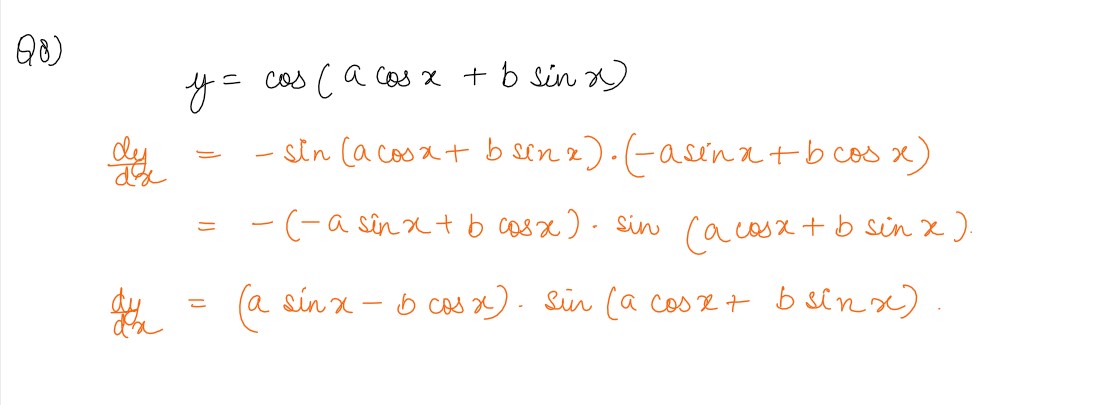 Q8)
y = cos (a cos x + b sin x)
dy/dx = - sin (a cos x + b sin x) . (-a sin x + b cos x)
= - (-a sin x + b cos x) . sin (a cos x + b sin x).
dy/dx = (a sin x - b cos x) . sin (a cos x + b sin x) .